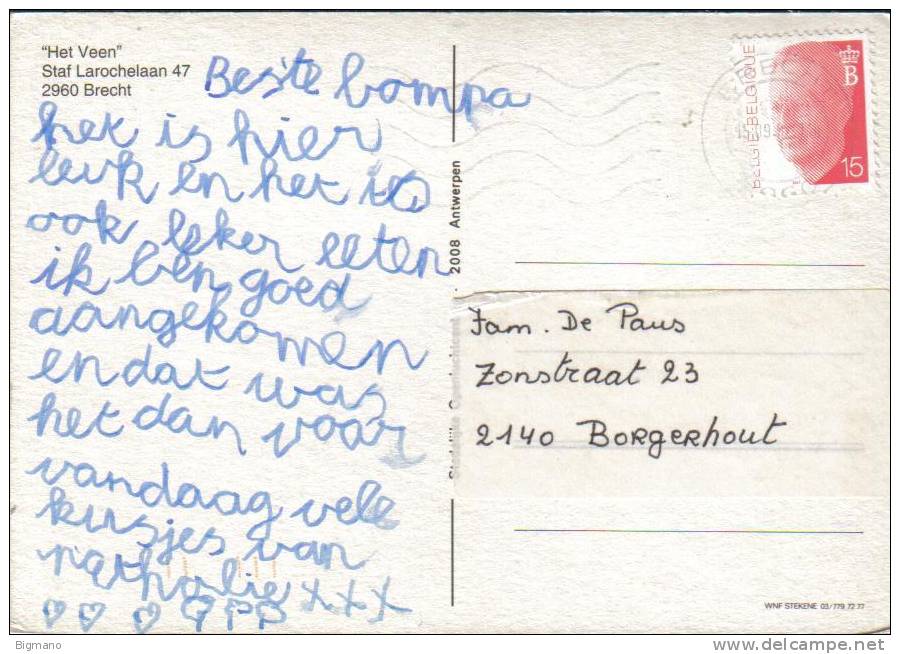 "Het Veen"
Staf Larochelaan 47
2960 Brecht
Beste bompa
het is hier
leuk en het is
ook leker eeten
ik ben goed
aangekomen
en dat was
het dan voor
vandaag vele
kusjes van
natholie xxx
2008 Antwerpen
BELGIE-BELGIQUE
B
15
Fam. De Paus
Zonstraat 23
2140 Borgerhout
WNF STEKENE 03/779 72 77
Bigmano
www.delcampe.net